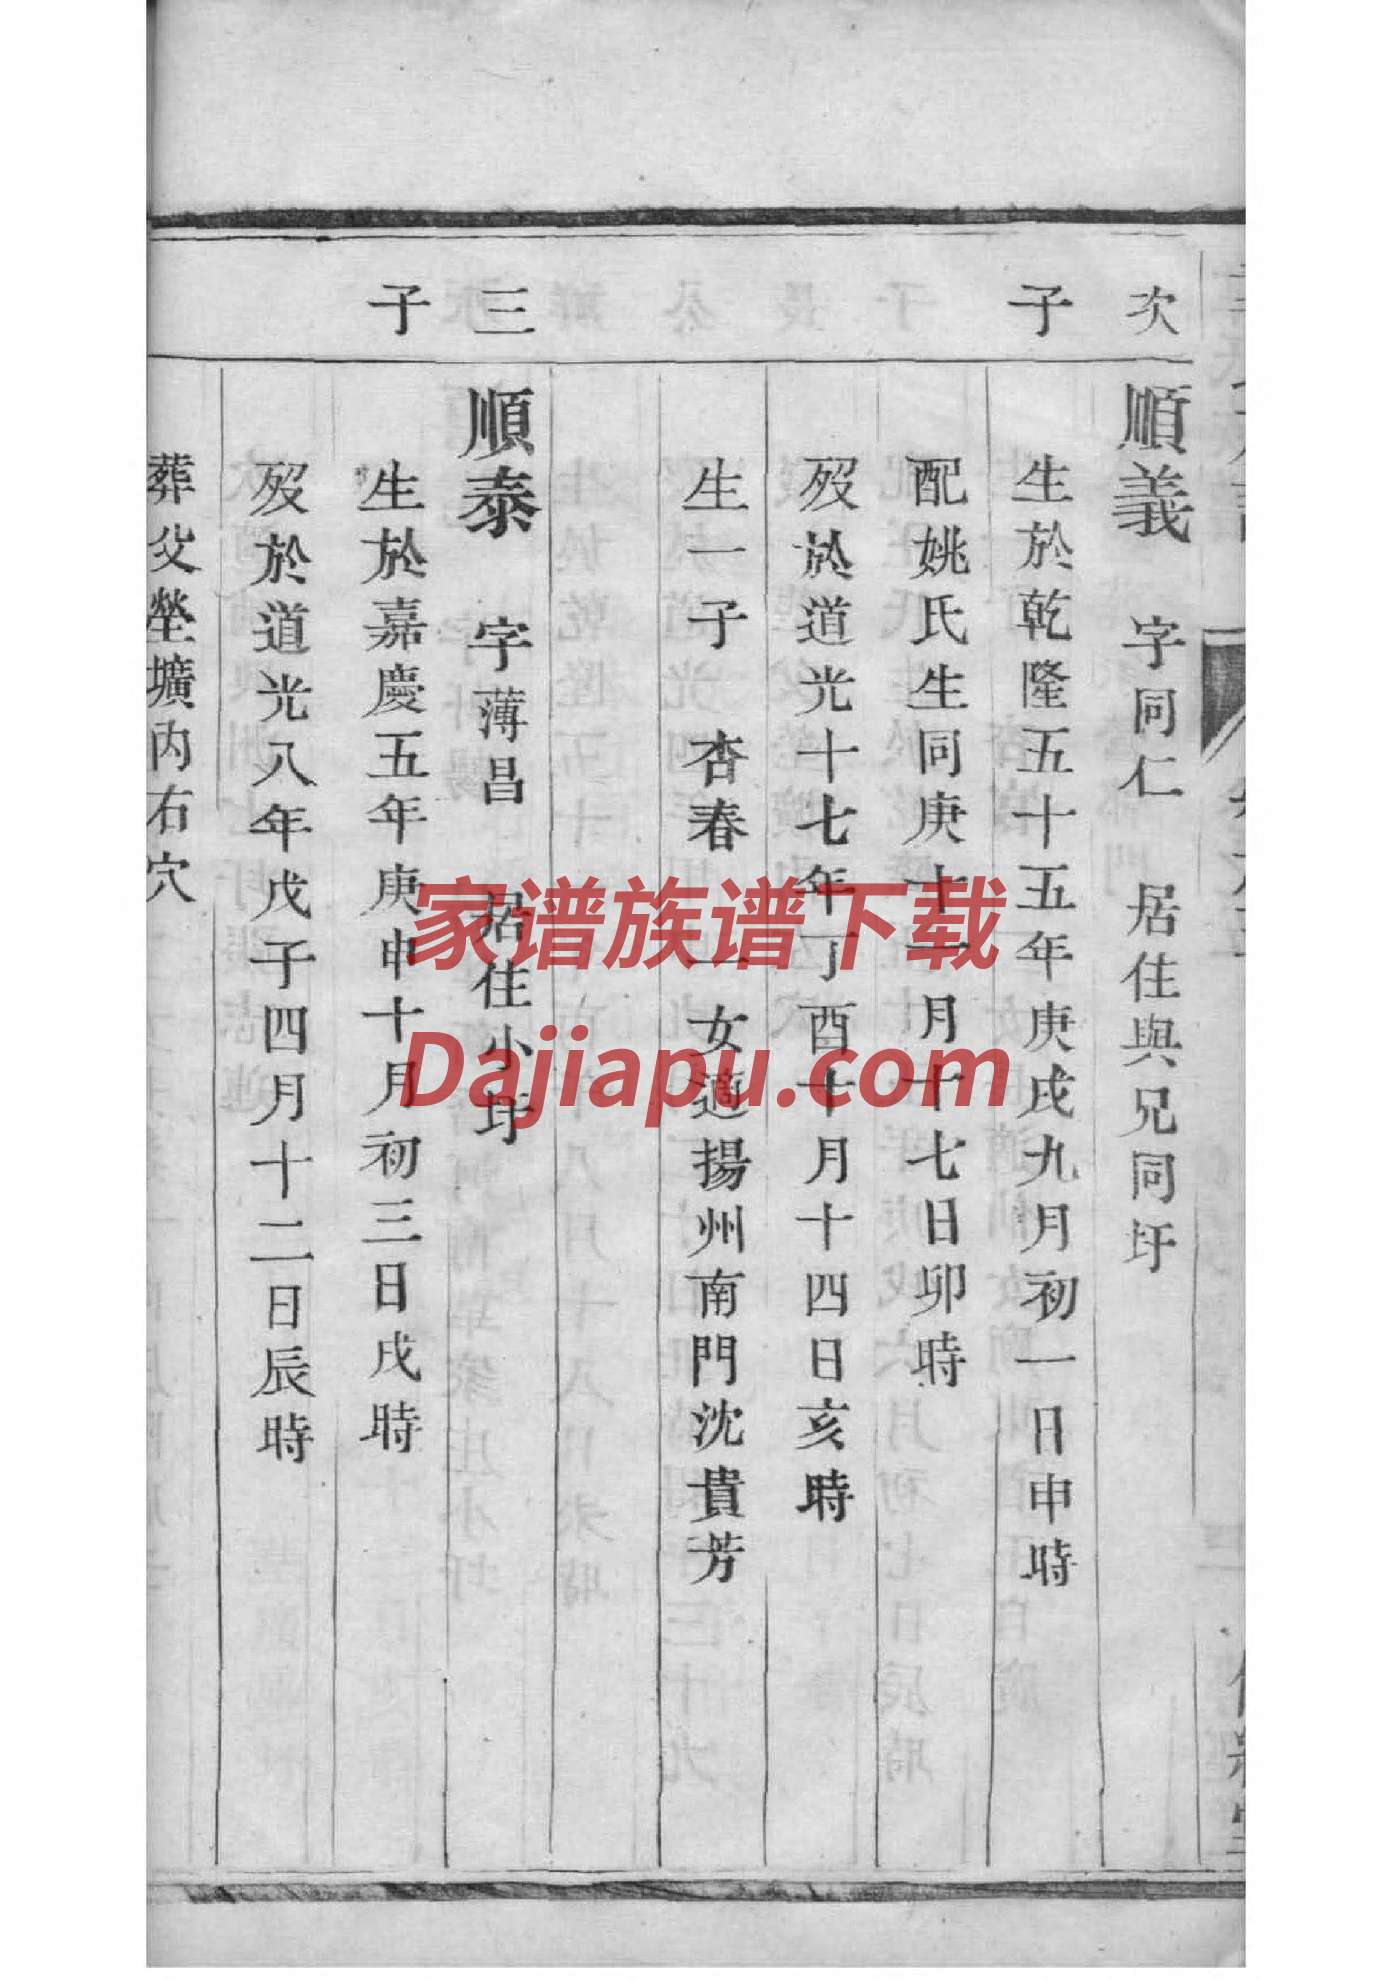 次子
順義 字同仁 居住與兄同圩
生於乾隆五十五年庚戌九月初一日申時
配姚氏生同庚十一月十七日卯時
歿於道光十七年丁酉十月十四日亥時
生一子 杏春 一女適揚州南門沈貴芳
三子
順泰 字薄昌 居住小圩
生於嘉慶五年庚申十月初三日戌時
歿於道光八年戊子四月十二日辰時
葬父塋壙內右穴
家谱族谱下载
Dajiapu.com